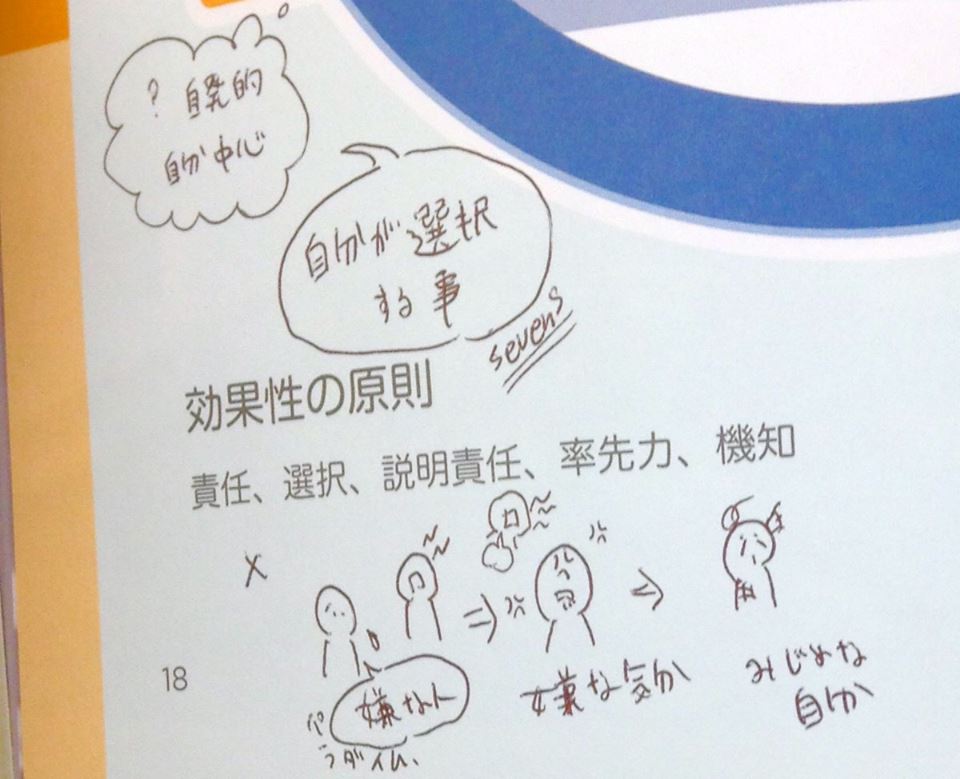 ? 自発的
自分中心
自分が選択
する事
sevens
効果性の原則
責任、選択、説明責任、率先力、機知
×
18
嫌な人
パラダイム、
嫌な気分
みじめな
自分